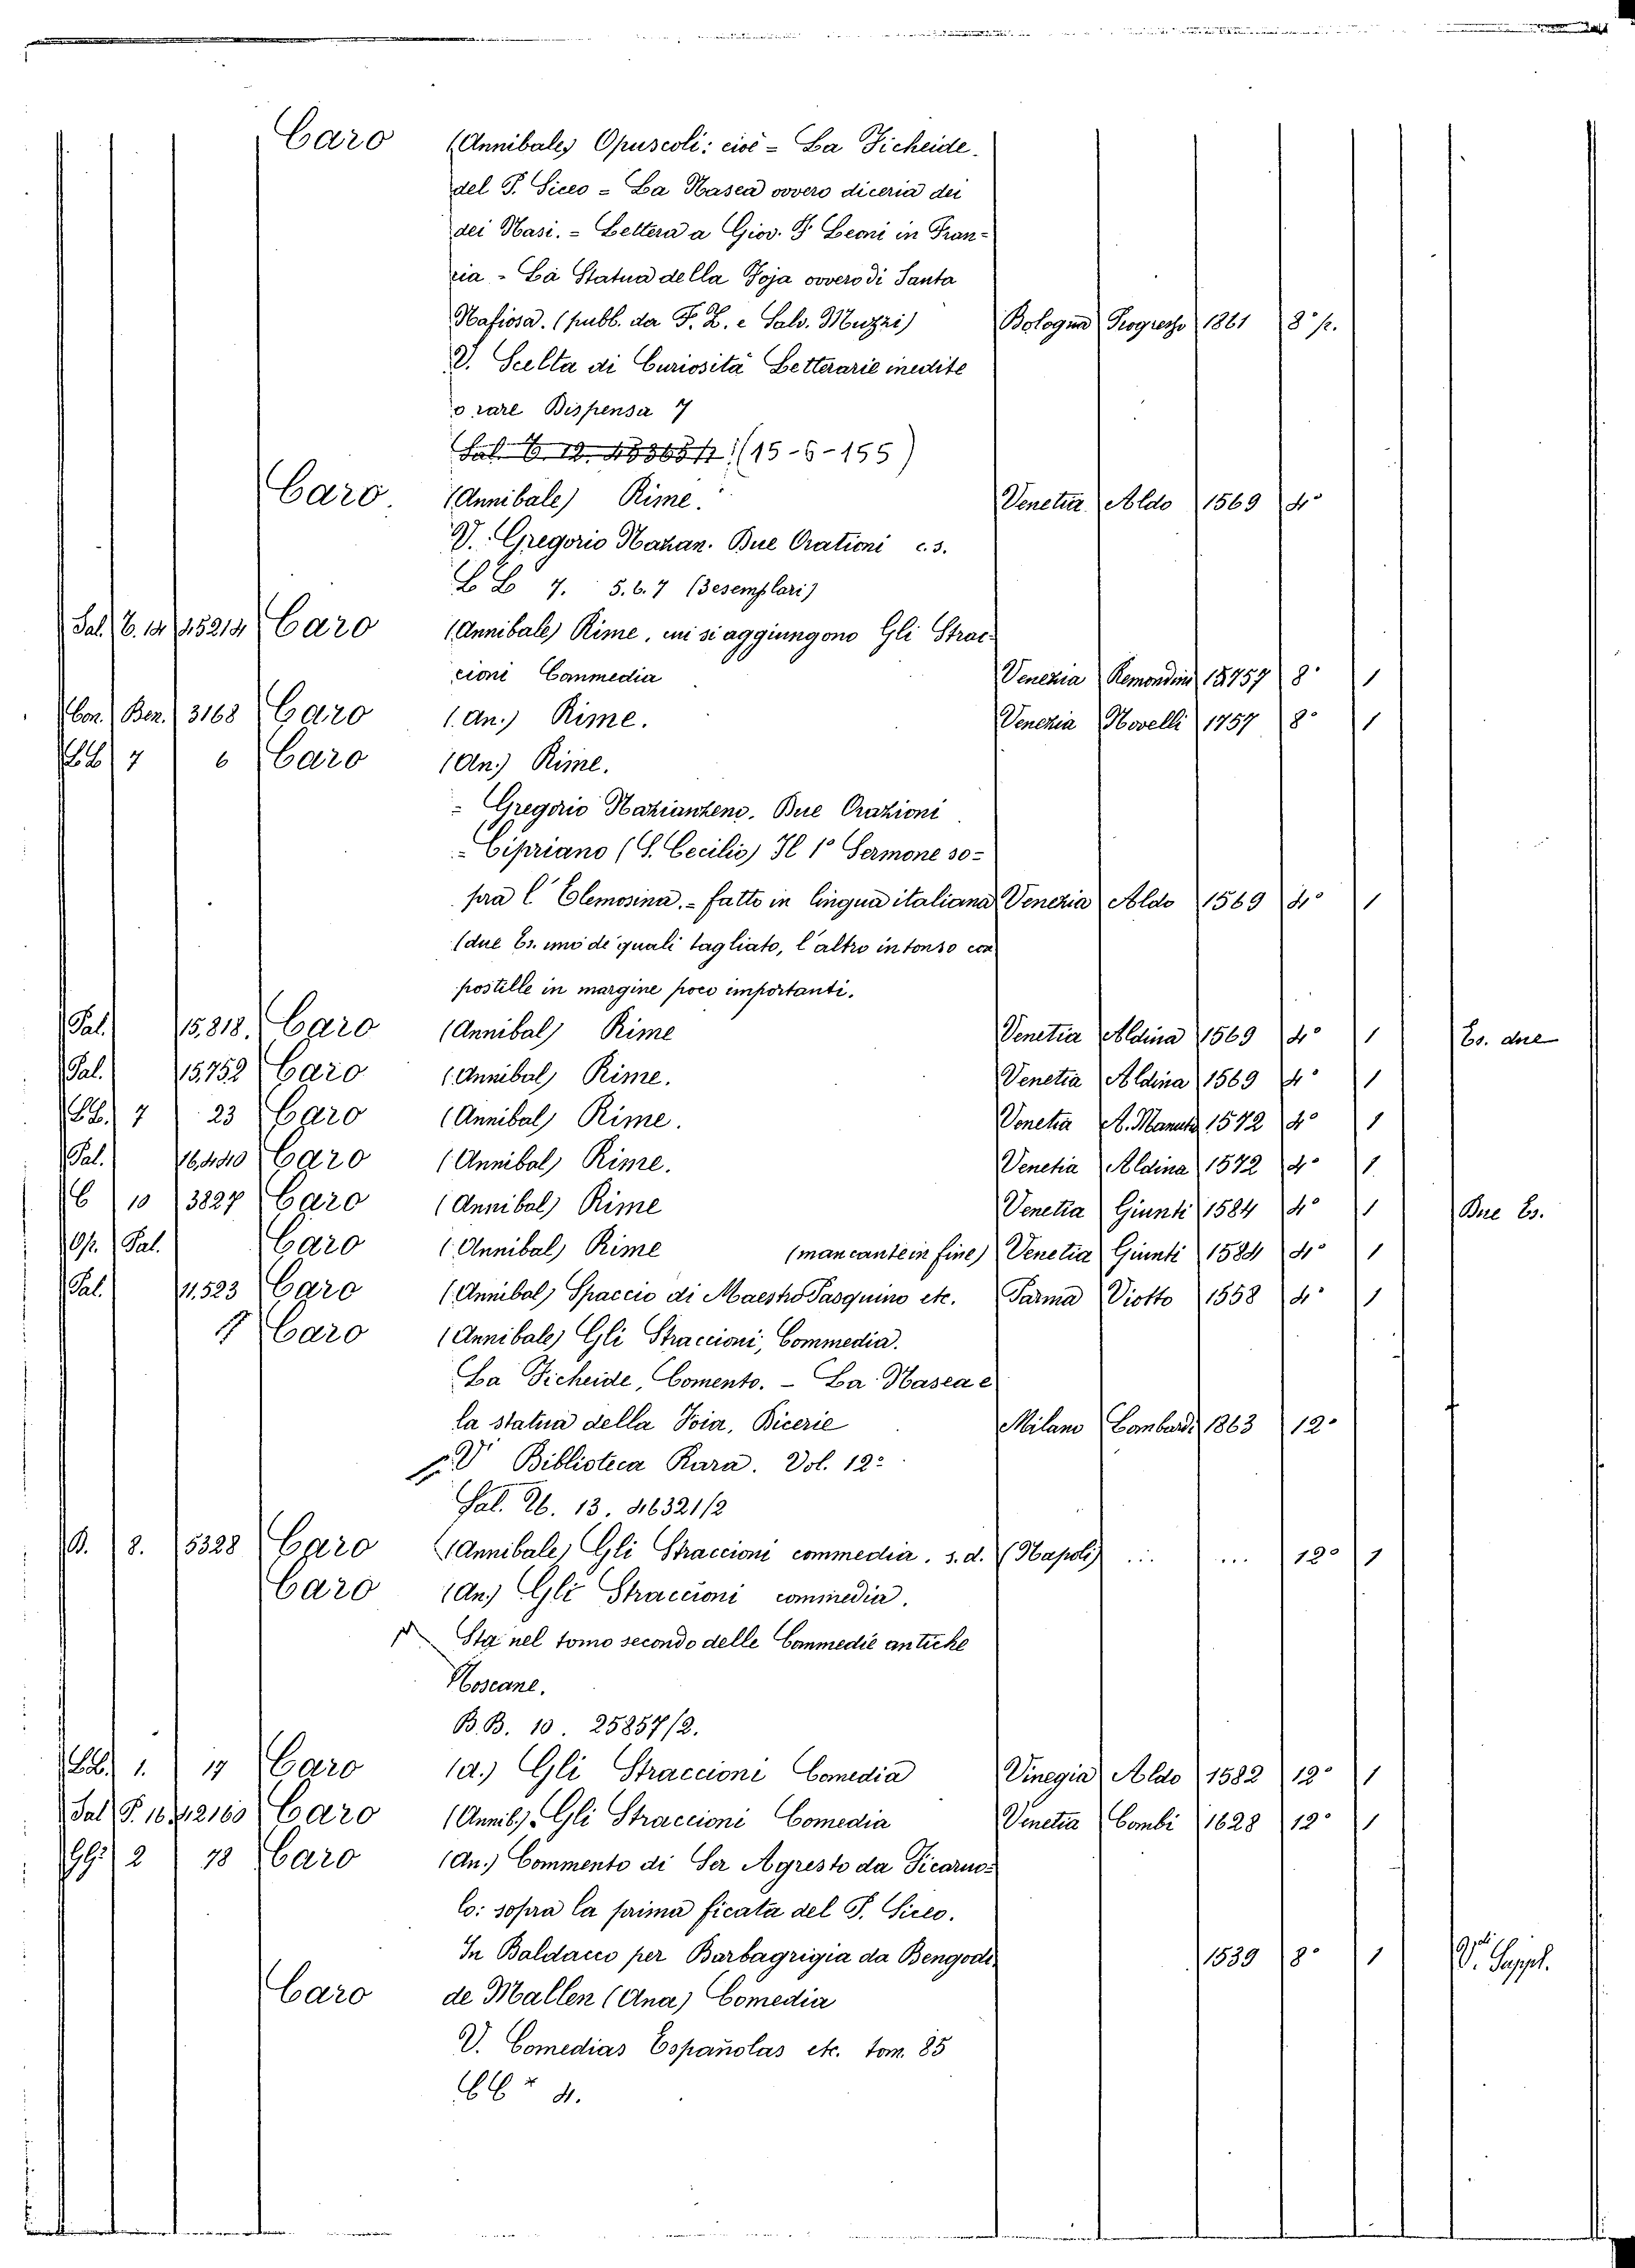 Caro (Annibale) Opuscoli: cioè = La Ficheide.
del P. Siceo = La Nasea ovvero diceria dei
dei Nasi. = Lettera a Giov. F. Leoni in Fran-
cia - La Statua della Foja ovvero di Santa
Nafiosa. (pubb. da F. Z. e Salv. Muzzi) Bologna Progresso 1861 8° p.
V. Scelta di Curiosità Letterarie inedite
o rare Dispensa 7
(15-6-155)
Caro (Annibale) Rime. Venetia Aldo 1569 4°
V. Gregorio Nazian. Due Orationi c.s.
L L 7. 5.6.7 (3 esemplari)
Sal. E. 14 45214 Caro (Annibale) Rime, cui si aggiungono Gli Strac-
cioni Commedia Venezia Remondini 1757 8° 1
Con. Ben. 3168 Caro (An.) Rime. Venezia Novelli 1757 8° 1
LL 7 6 Caro (An.) Rime.
= Gregorio Nazianzeno. Due Orazioni
= Cipriano (S. Cecilio) Il 1° Sermone so-
pra l'Elemosina. - fatto in lingua italiana Venezia Aldo 1569 4° 1
(due Es. uno de' quali tagliato, l'altro intonso con
postille in margine poco importanti.
Pal. 15,818. Caro (Annibal) Rime Venetia Aldina 1569 4° 1 Es. due
Pal. 15,752 Caro (Annibal) Rime. Venetia Aldina 1569 4° 1
LL. 7 23 Caro (Annibal) Rime. Venetia A. Manuzi 1572 4° 1
Pal. 16,440 Caro (Annibal) Rime. Venetia Aldina 1572 4° 1
C 10 3827 Caro (Annibal) Rime Venetia Giunti 1584 4° 1 Due Es.
Op. Pal. Caro (Annibal) Rime (mancante in fine) Venetia Giunti 1584 4° 1
Pal. 11,523 Caro (Annibal) Spaccio di Maestro Pasquino etc. Parma Viotto 1558 4° 1
Caro (Annibale) Gli Straccioni, Commedia.
La Ficheide, Comento. - La Nasea e
la statua della Foia, Dicerie Milano Lombardi 1863 12°
V Biblioteca Rara. Vol. 12°
Sal. 26. 13. 46321/2
B. 8. 5328 Caro (Annibale) Gli Straccioni commedia. s. d. (Napoli) ... ... 12° 1
Caro (An.) Gli Straccioni commedia.
Sta nel tomo secondo delle Commedie antiche
Toscane.
B.B. 10. 25857/2.
LL. 1. 17 Caro (A.) Gli Straccioni Comedia Vinegia Aldo 1582 12° 1
Sal P. 16 42160 Caro (Annib.) Gli Straccioni Comedia Venetia Combi 1628 12° 1
GG. 2 78 Caro (An.) Commento di Ser Agresto da Ficaruo-
lo: sopra la prima ficata del P. Siceo.
In Baldacco per Barbagrigia da Bengodi. 1539 8° 1 V. Suppl.
Caro de Mallen (Ana) Comedia
V. Comedias Españolas etc. tom. 85
4.